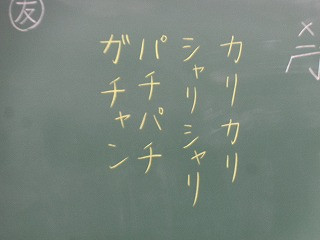 カリカリ
シャリシャリ
パチパチ
ガチャン
友